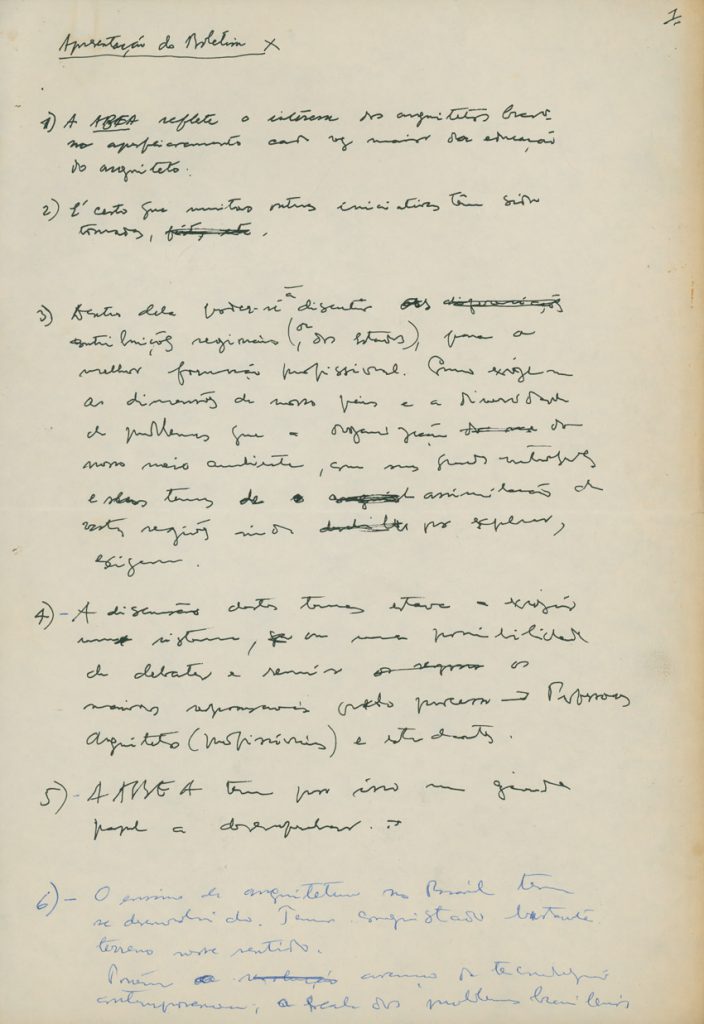 1.
Apresentação do Boletim X
1) A ABEA reflete o interesse dos arquitetos brasi-
no aperfeiçoamento cada vez maior da educação
do arquiteto.
2) É certo que muitas outras iniciativas têm sido
tomadas,
3) Dentro dela poder-se-á discutir as
contribuições regionais (ou dos Estados), para a
melhor formação profissional. Como exigem
as dimensões de nosso país e a diversidade
de problemas que a organização do
nosso meio ambiente, com
e seus temas de assimilação de
vastas regiões ainda por explorar,
exigem.
4) - A discussão destes temas estava a exigir
um sistema, ou uma possibilidade
de debater e reunir os
maiores responsáveis processo → Professores
Arquitetos (profissionais) e estudantes.
5) - A ABEA tem por isso um grande
papel a desempenhar.
6) - O ensino de arquitetura no Brasil tem
se desenvolvido. Temos conquistado bastante
terreno nesse sentido.
Porém o avanço da tecnologia
contemporânea, a escala dos problemas brasileiros